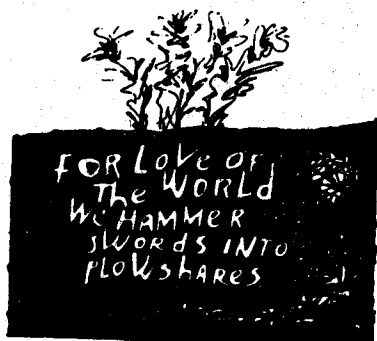 FOR LOVE OF
The WORLD
We HAMMER
SWORDS INTO
PLOWshARES